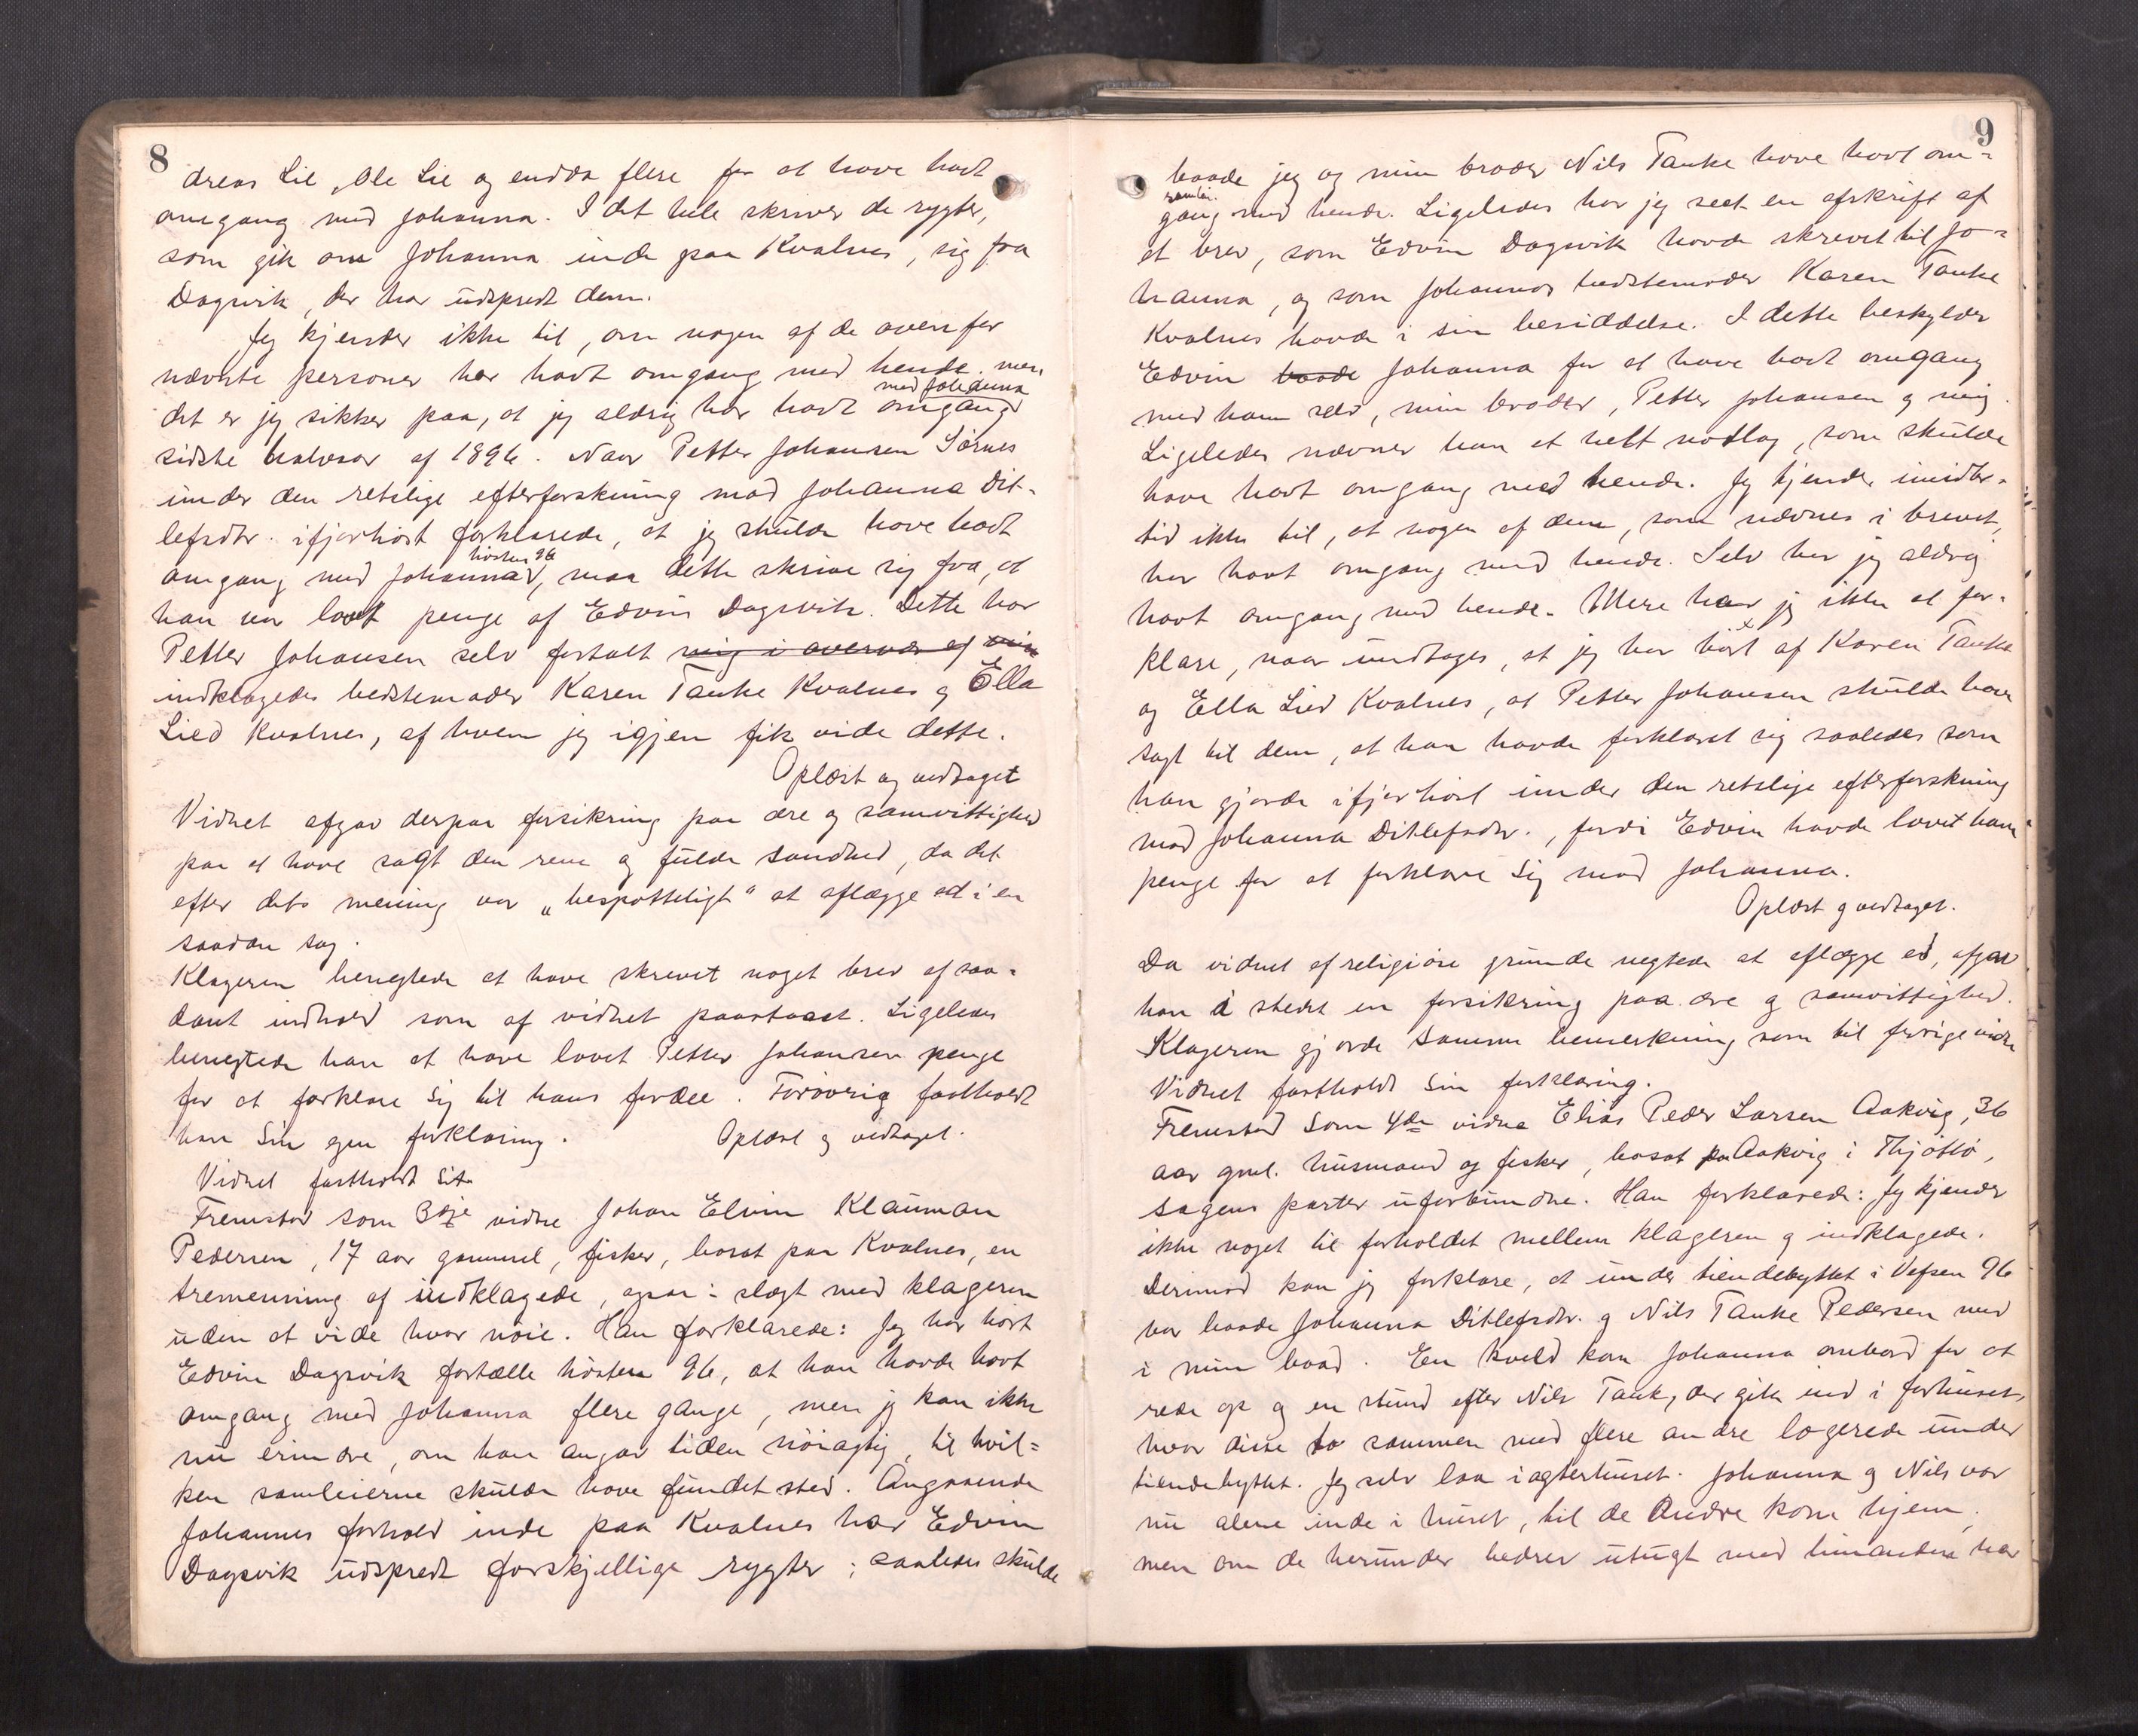 8
dreas Lie, Ole Lie og endda flere for at have havt
omgang med Johanna. I det hele skriver de rygter,
som gik om Johanna inde paa Kvalnes, sig fra
Dagsvik, der har udspredt dem.
Jeg kjender ikke til, om nogen af de ovenfor
nævnte personer har havt omgang med hende, men
med Johanna
det er jeg sikker paa, at jeg aldrig har havt omgang
sidste halvaar af 1896. Naar Petter Johansen Sörnes
under den retslige efterforskning mod Johanna Dit-
lefsdtr. ifjorhöst forklarede, at jeg skulde have havt
hösten 96
omgang med Johanna, maa dette skrive sig fra, at
han var lovet penge af Edvin Dagsvik. Dette har
Petter Johansen selv fortalt mig i overvær af min
indklagedes bedstemoder Karen Tanke Kvalnes og Ella
Lied Kvalnes, af hvem jeg igjen fik vide dette.
Oplæst og vedtaget
Vidnet afgav derpaa forsikring paa ære og samvittighed
paa at have sagt den rene og fulde sandhed, da det
efter dets mening var „bespotteligt" at aflægge ed i en
saadan sag.
Klageren benegtede at have skrevet noget brev af saa-
dant indhold som af vidnet paastaaet. Ligeledes
benegtede han at have lovet Petter Johansen penge
for at forklare sig til hans fordel. Forövrig fastholdt
han sin egen forklaring. Oplæst og vedtaget.
Vidnet fastholdt sit.
Fremstod som 3dje vidne Johan Elvin Klauman
Pedersen, 17 aar gammel, fisker, bosat paa Kvalnes, en
tremenning af indklagede, ogsaa i slægt med klageren
uden at vide hvor nöie. Han forklarede: Jeg har hört
Edvin Dagsvik fortælle hösten 96, at han havde havt
omgang med Johanna flere gange, men jeg kan ikke
nu erindre, om han angav tiden nöiagtig, til hvil=
ken samleierne skulde have fundet sted. Angaaende
Johannes forhold inde paa Kvalnes har Edvin
Dagsvik udspredt forskjellige rygter; saaledes skulde
9
baade jeg og min broder Nils Tanke have havt om=
samlei.
gang med hende. Ligeledes har jeg seet en afskrift af
et brev, som Edvin Dagsvik havde skrevet til Jo=
hanna, og som Johannas bedstemoder Karen Tanke
Kvalnes havde i sin besiddelse. I dette beskylder
Edvin baade Johanna for at have havt omgang
med ham selv, min broder, Petter Johansen og mig.
Ligeledes nævner han et helt notlag, som skulde
have havt omgang med hende. Jeg kjender imidler-
tid ikke til, at nogen af dem, som nævnes i brevet,
har havt omgang med hende. Selv har jeg aldrig
havt omgang med hende. Mere har jeg ikke at for-
klare, naar undtages, at jeg har hört af Karen Tanke
og Ella Lied Kvalnes, at Petter Johansen skulde have
sagt til dem, at han havde forklaret sig saaledes som
han gjorde ifjorhöst under den retslige efterforskning
mod Johanna Ditlefsdtr., fordi Edvin havde lovet ham
penge for at forklare sig mod Johanna.
Oplæst og vedtaget.
Da vidnet af religiöse grunde negtede at aflægge ed, afgav
han i stedet en forsikring paa ære og samvittighed.
Klageren gjorde samme bemerkning som til forrige vidne
Vidnet fastholdt sin forklaring.
Fremstod som 4de vidne Elias Peder Larsen Aakvig, 36
aar gml. husmand og fisker, bosat paa Aakvig i Thjöttö,
sagens parter uforbundne. Han forklarede: Jeg kjender
ikke noget til forholdet mellem klageren og indklagede.
Derimod kan jeg forklare, at under tiendebyttet i Vefsen 96
var baade Johanna Ditlefsdtr. og Nils Tanke Pedersen med
i min baad. En kveld kom Johanna ombord for at
rede op og en stund efter Nils Tank, der gik ind i forhuset,
hvor disse to sammen med flere andre logerede under
tiendebyttet. Jeg selv laa i agterhuset. Johanna og Nils var
nu alene inde i huset, til de andre kom hjem,
men om de herunder bedrev utugt med hinanden har